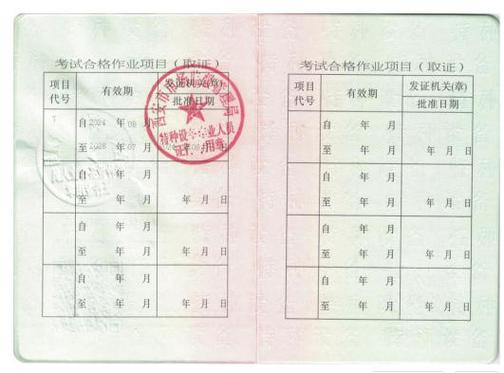 考试合格作业项目（取证）
项目代号 有效期 发证机关(章) 批准日期
自 2024 年 08 月
至 2028 年 07 月
自 年 月
至 年 月 年 月 日
自 年 月
至 年 月 年 月 日
自 年 月
至 年 月 年 月 日
西安市市场监督管理局
特种设 业人员
用章
考试合格作业项目（取证）
项目代号 有效期 发证机关(章) 批准日期
自 年 月
至 年 月 年 月 日
自 年 月
至 年 月 年 月 日
自 年 月
至 年 月 年 月 日
自 年 月
至 年 月 年 月 日